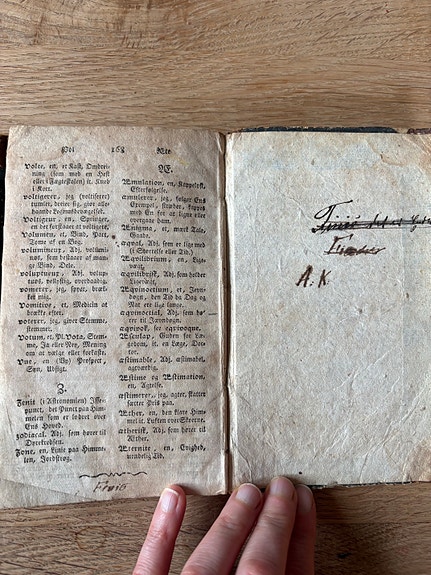 Vol 168 Æte
Volte, en, et Kast, Omdrei-
ning (som med en Hest
eller i Fægtesalen) it. Kneb
i Kort.
voltigerer, jeg (voltiserer)
tumler, dreier sig, giør alle-
Voltigeur, en, Springer,
en der forstaaer at voltigere.
Volumen, et Bind, Part,
Tome af en Bog.
volumineur, Adj. volumi-
nøs, som bestaaer af man-
ge Bind, Dele.
voluptueux, Adj. volup-
tuøs, vellystig, overdaadig.
vomerer, jeg, spyer, bræk-
ker mig.
Vomitive, et, Medicin at
brække efter.
voterer, jeg, giver Stemme,
stemmer.
Votum, et, Pl. Vota, Stem-
me, Ja eller Nej, Mening
om at vælge eller forkaste.
Vue, en, (Vy) Prospect,
Syn, Udsigt.
Z.
Zenit (i Astronomien) Isse-
punct, det Punct paa Him-
melen som er lodret over
Ens Hoved.
zodiacal, Adj. som hører til
Dyrekredsen.
Zone, en, Linie paa Himme-
len, Jordstrøg.
Æ.
Æmulation, en, Kappelyst,
Efterfølgelse.
æmulerer, jeg, følger Ens
Exempel, stræber, kappes
med En for at ligne eller
overgaae ham.
Ænigma, et, mørk Tale,
Gaade.
æqval, Adj. som er lige med
(i Størrelse eller Tid.)
Æqvilibrium, en, Lige-
vægt.
æqvilibrist, Adj. som holder
Ligevægt.
Æqvinoctium, et, Jevn-
døgn, den Tid da Dag og
Nat ere lige lange.
æqvinoctial, Adj. som hø-
rer til Jevndøgn.
æqvivok, see eqvivoqve.
Æsculap, Guden for Læg-
kunst, it. en Læge, Doc-
tor.
æstimable, Adj. æstimabel,
agtværdig.
Æstime og Æstimation,
en, Agtelse.
æstimerer, jeg, agter, skatter
sætter Priis paa.
Æther, en, den klare Him-
mel it. Luften over Skyerne.
ætherisk, Adj. som hører til
Æther.
Æternite, en, Evighed,
uendelig Tid.
A. K.